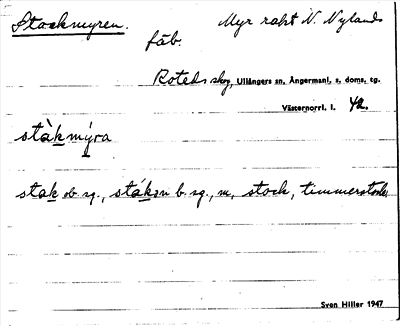 Stockmyren. Myr rakt N. Nylands
fäb.
Roteds skg, Ullångers sn, Ångermanl. s. doms. tg.
Västernorrl. l. 42.
stàkmýra
stak ob. sg., stákɜn b. sg., m, stock, timmerstock
Sven Hiller 1947